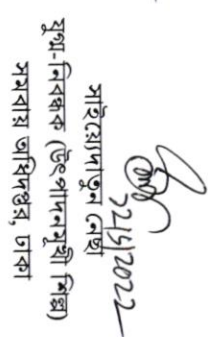 সাইয়েদাতুন নেছা
যুগ্ম-নিবন্ধক (উৎপাদনমুখী শিল্প)
সমবায় অধিদপ্তর, ঢাকা